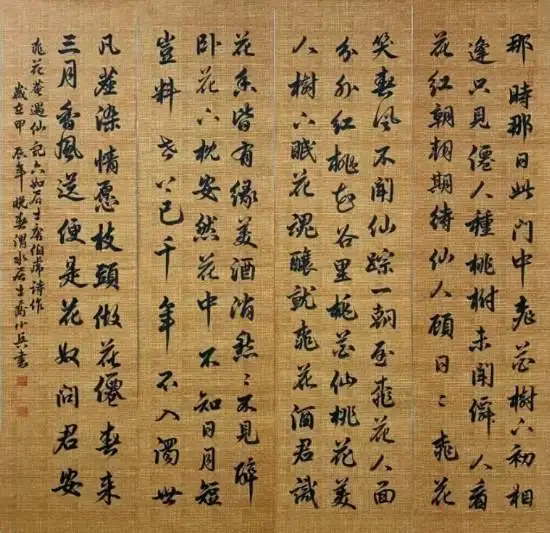 那時那日此門中桃花樹下初相
逢只見僊人種桃樹未聞僊人看
花紅朝朝期待仙人顧日〻桃花
笑春風不聞仙踪一朝至桃花人面
分外紅桃花谷里桃花仙桃花美
人樹下眠花魂釀就桃花酒君識
花香皆有緣美酒消愁〻不見醉
卧花下枕安然花中不知日月短
豈料世上已千年不入濁世
凡塵染情愿枝頭做花僊春来
三月香風送便是花奴問君安
桃花菴遇仙記六如居士唐伯虎詩作
歲在甲辰年晚春渭水居士喬小兵書